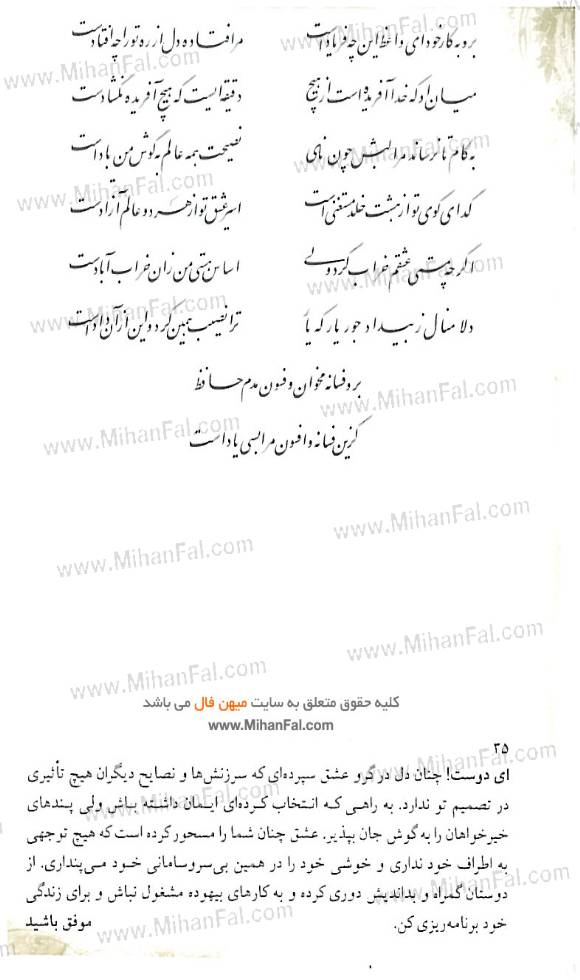 برو به کار خود ای واعظ این چه فریاد است مرا فتاده دل از ره تو را چه افتاد است
میان او که خدا آفریده است از هیچ دقیقه ایست که هیچ آفریده نگشاد است
به کام تا نرساند مرا لبش چون نای نصیحت همه عالم به گوش من باد است
گدای کوی تو از هشت خلد مستغنی است اسیر عشق تو از هر دو عالم آزاد است
اگر چه مستی عشقم خراب کرد ولی اساس هستی من زان خراب آباد است
دلا منال ز بیداد جور یار که یار تو را نصیب همین کرد و این از آن داد است
برو فسانه مخوان و فسون مدم حافظ
کزین فسانه و افسون مرا بسی یاد است
کلیه حقوق متعلق به سایت میهن فال می باشد
www.MihanFal.com
۳۵
ای دوست! چنان دل در گرو عشق سپرده‌ای که سرزنش‌ها و نصایح دیگران هیچ تأثیری
در تصمیم تو ندارد. به راهی که انتخاب کرده‌ای ایمان داشته باش ولی پندهای
خیرخواهان را به گوش جان بپذیر. عشق چنان شما را مسحور کرده است که هیچ توجهی
به اطراف خود نداری و خوشی خود را در همین بی‌سروسامانی خود می‌پنداری. از
دوستان گمراه و بداندیش دوری کرده و به کارهای بیهوده مشغول نباش و برای زندگی
خود برنامه‌ریزی کن. موفق باشید